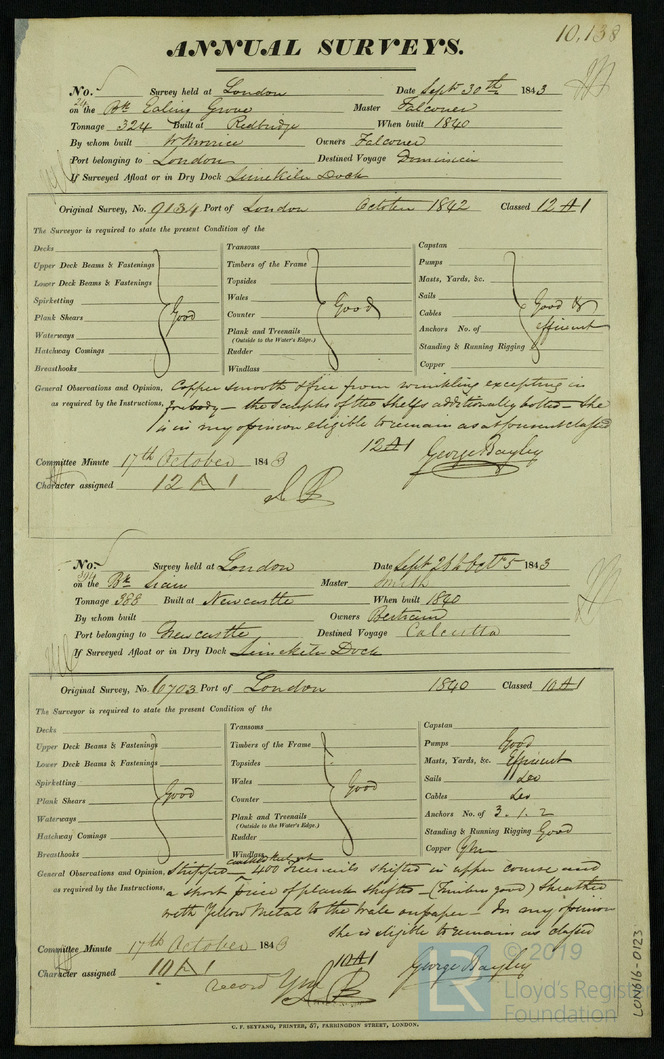 10,138
ANNUAL SURVEYS.
No. Survey held at London Date Sept 30th 1843
on the Bk Ealing Grove Master Falconer
Tonnage 324 Built at Redbridge When built 1840
By whom built Owners Falconer
Port belonging to London Destined Voyage Dominica
If Surveyed Afloat or in Dry Dock Limekiln Dock
Original Survey, No. 9134 Port of London October 1842 Classed 12 A 1
The Surveyor is required to state the present Condition of the
Decks Transoms Capstan
Upper Deck Beams & Fastenings Timbers of the Frame Pumps
Lower Deck Beams & Fastenings Topsides Masts, Yards, &c.
Spirketting Wales Sails
Plank Shears Good Counter Good Cables Good &
Waterways Plank and Treenails Anchors No. of efficient
(Outside to the Water's Edge.)
Hatchway Comings Rudder Standing & Running Rigging
Breasthooks Windlass Copper
General Observations and Opinion, Copper smooth & free from wrinkling excepting in
as required by the Instructions, forebody – the scarphs of the Shelfs additionally bolted – She
is in my opinion eligible to remain as at present classed
12 A 1
George Bayley
Committee Minute 17th October 1843
Character assigned 12 A 1
No. Survey held at London Date Sept 28 & Oct 5 1843
on the Bk Siam Master Smith
Tonnage 388 Built at Newcastle When built 1840
By whom built Owners Bertram
Port belonging to Newcastle Destined Voyage Calcutta
If Surveyed Afloat or in Dry Dock Limekiln Dock
Original Survey, No. 6703 Port of London 1840 Classed 10 A 1
The Surveyor is required to state the present Condition of the
Decks Transoms Capstan
Upper Deck Beams & Fastenings Timbers of the Frame Pumps Good
Lower Deck Beams & Fastenings Topsides Masts, Yards, &c. Efficient
Spirketting Wales Sails Do
Plank Shears Good Counter Good Cables Do
Waterways Plank and Treenails Anchors No. of 3. 1. 2
(Outside to the Water's Edge.)
Hatchway Comings Rudder Standing & Running Rigging Good
Breasthooks Windlass Copper YM
General Observations and Opinion, Stripped – 400 Treenails shifted in upper course and
as required by the Instructions, a short piece of plank shifted – (Timbers good) Sheathed
with Yellow Metal to the Wale on paper – In my opinion
she is eligible to remain as classed
10 A 1
Committee Minute 17th October 1843
Character assigned 10 A 1
George Bayley
record YM
C. F. SEYFANG, PRINTER, 57, FARRINGDON STREET, LONDON.
© 2019
LR
Lloyd's Register
Foundation
LON616-0123